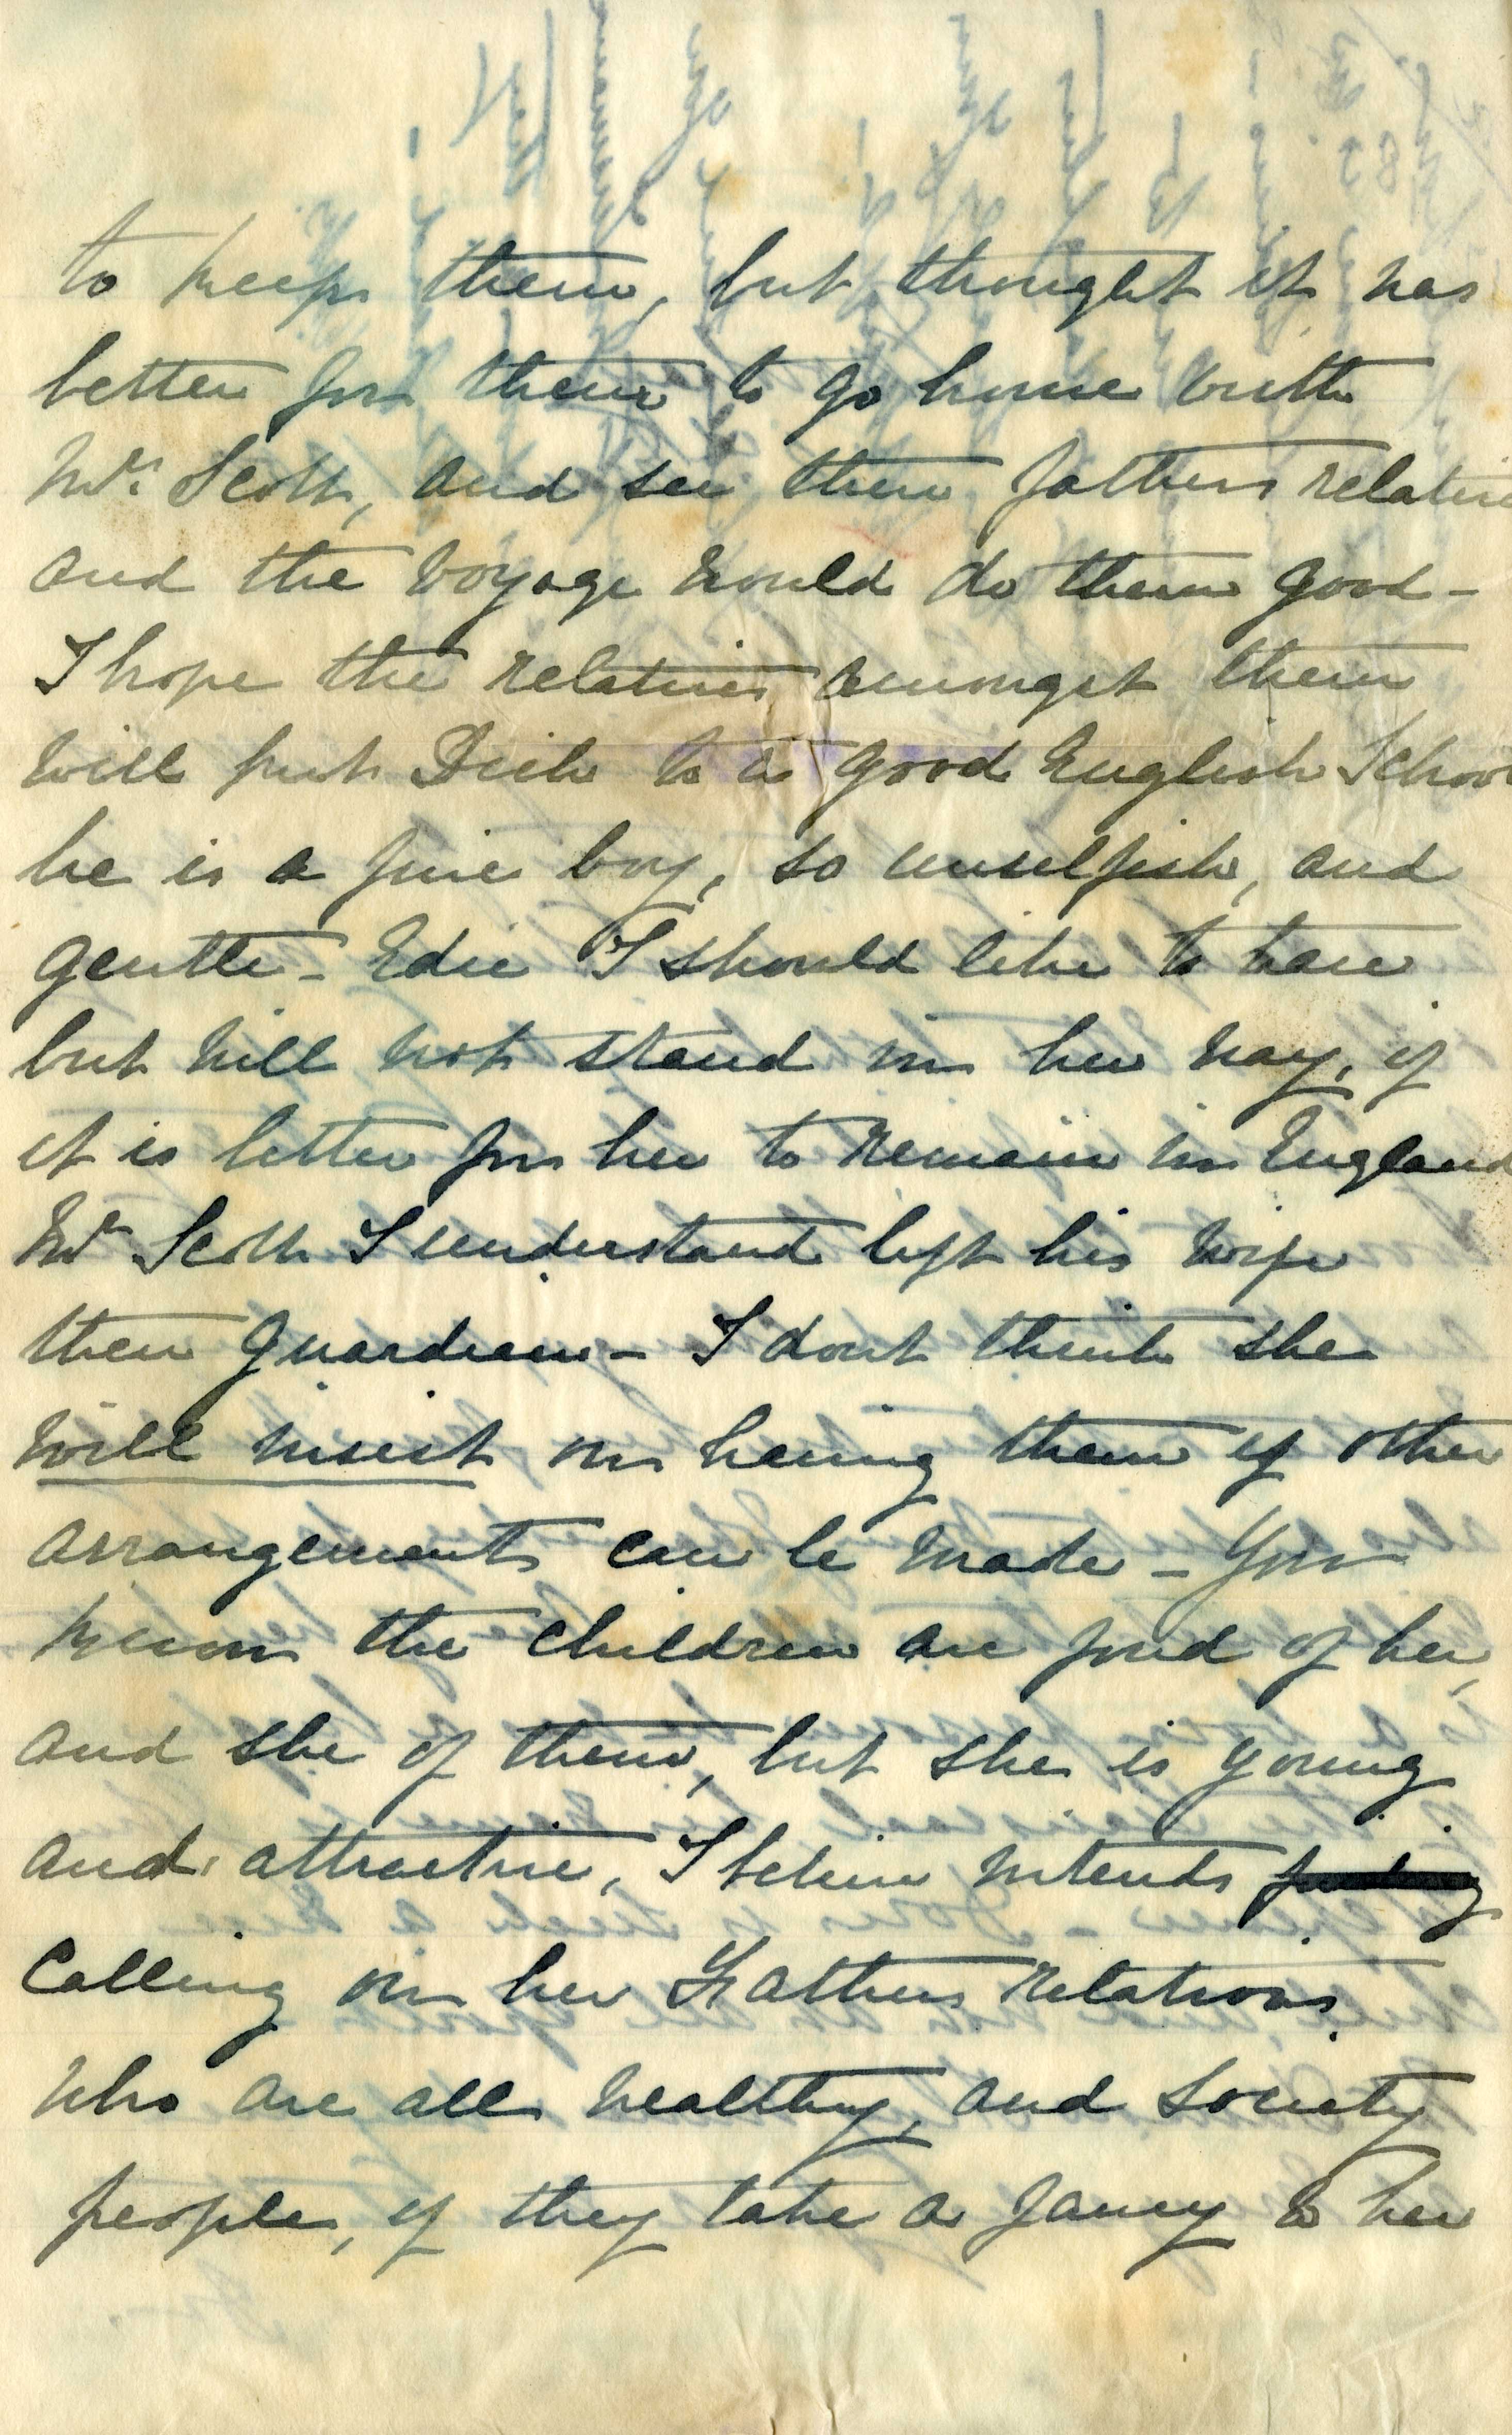 to keep them, but thought it was
better for them to go home with
Mrs. Scott, and see their fathers relative
and the voyage would do them good -
I hope the relatives amongst them
will put Dick to a good English School
he is a fine boy, so unselfish, and
gentle - Edie I should like to have
but will not stand in her way, if
it is better for her to remain in England
Mr Scott I understand left his wife
their Guardian - I dont think she
will insist on having them if other
arrangements can be made - You
know the children are fond of her,
and she of them, but she is young
and attractive, I believe intends
calling on her Fathers relations,
who are all wealthy, and society
people, if they take a fancy to her